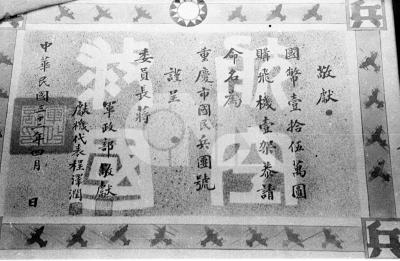 敬獻
國幣壹拾伍萬圓
購飛機壹架恭請
命名為
重慶市國民兵團號
謹呈
委員長蔣
軍政部獻
獻機代表程澤潤
中華民國一年四月 日
航空
救國
兵
兵